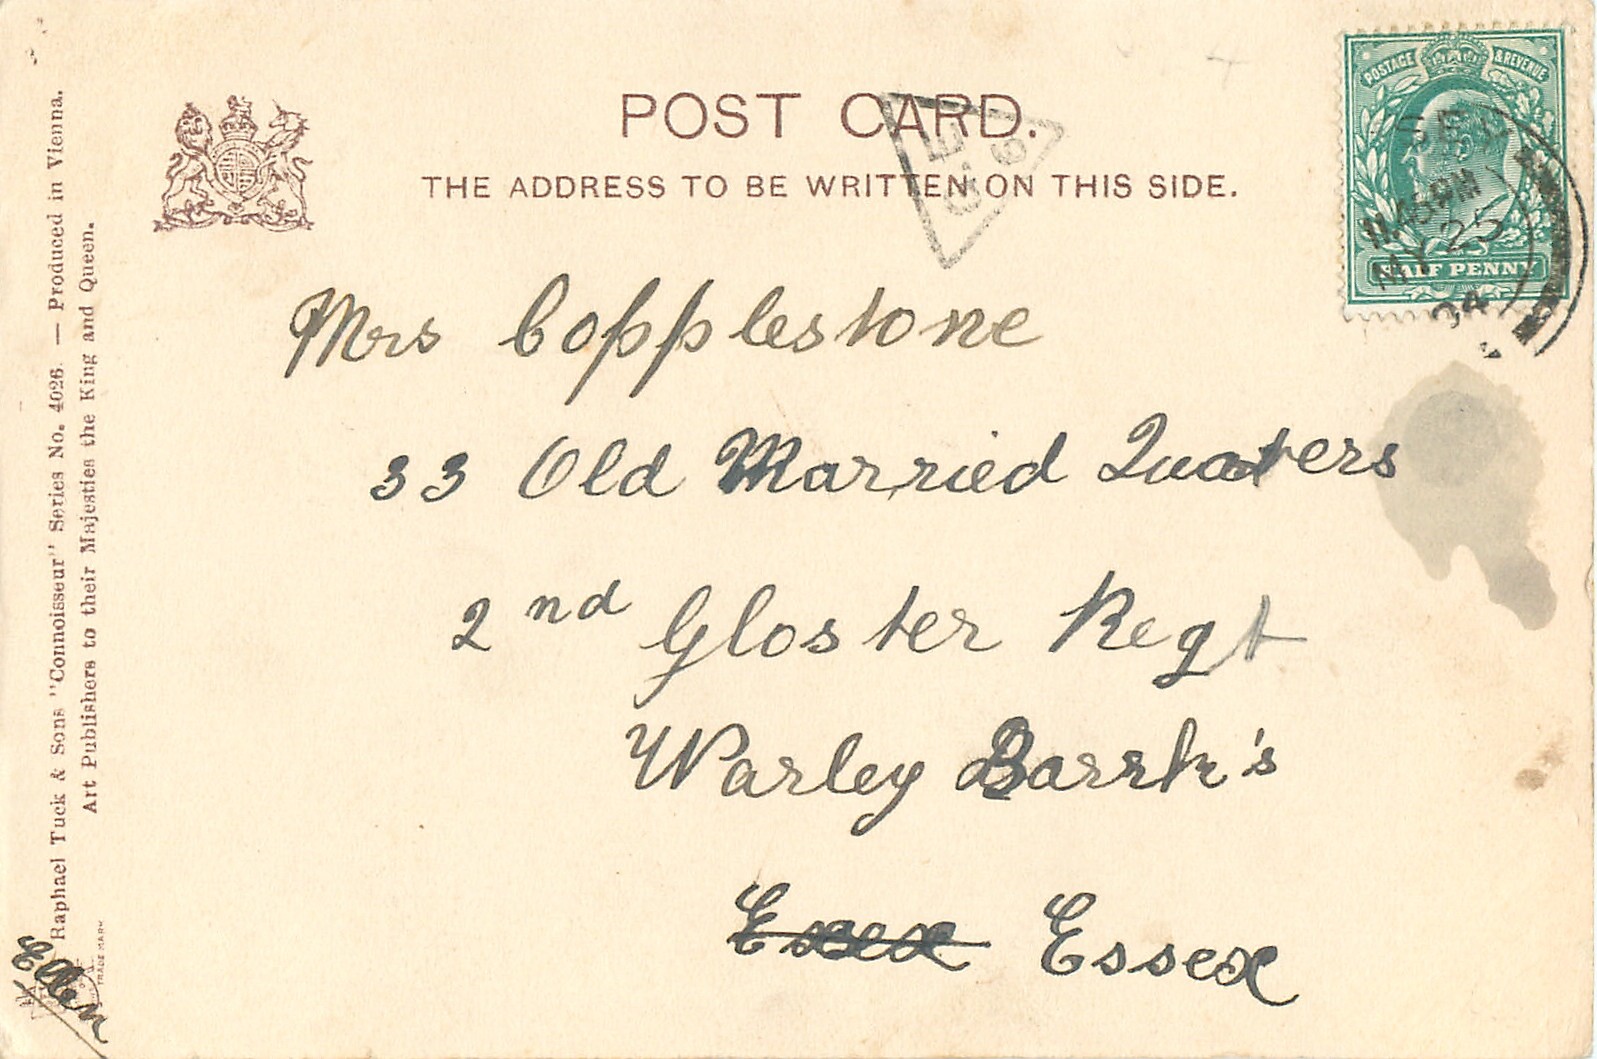 POST CARD.
THE ADDRESS TO BE WRITTEN ON THIS SIDE.
POSTAGE & REVENUE
HALF PENNY
11.45PM
MY 25
04
Mrs Copplestone
33 Old Married Quaters
2nd Gloster Regt
Warley Barrk's
Essex Essex
Raphael Tuck & Sons "Connoisseur" Series No. 4026. — Produced in Vienna.
Art Publishers to their Majesties the King and Queen.
TRADE MARK
Ellen